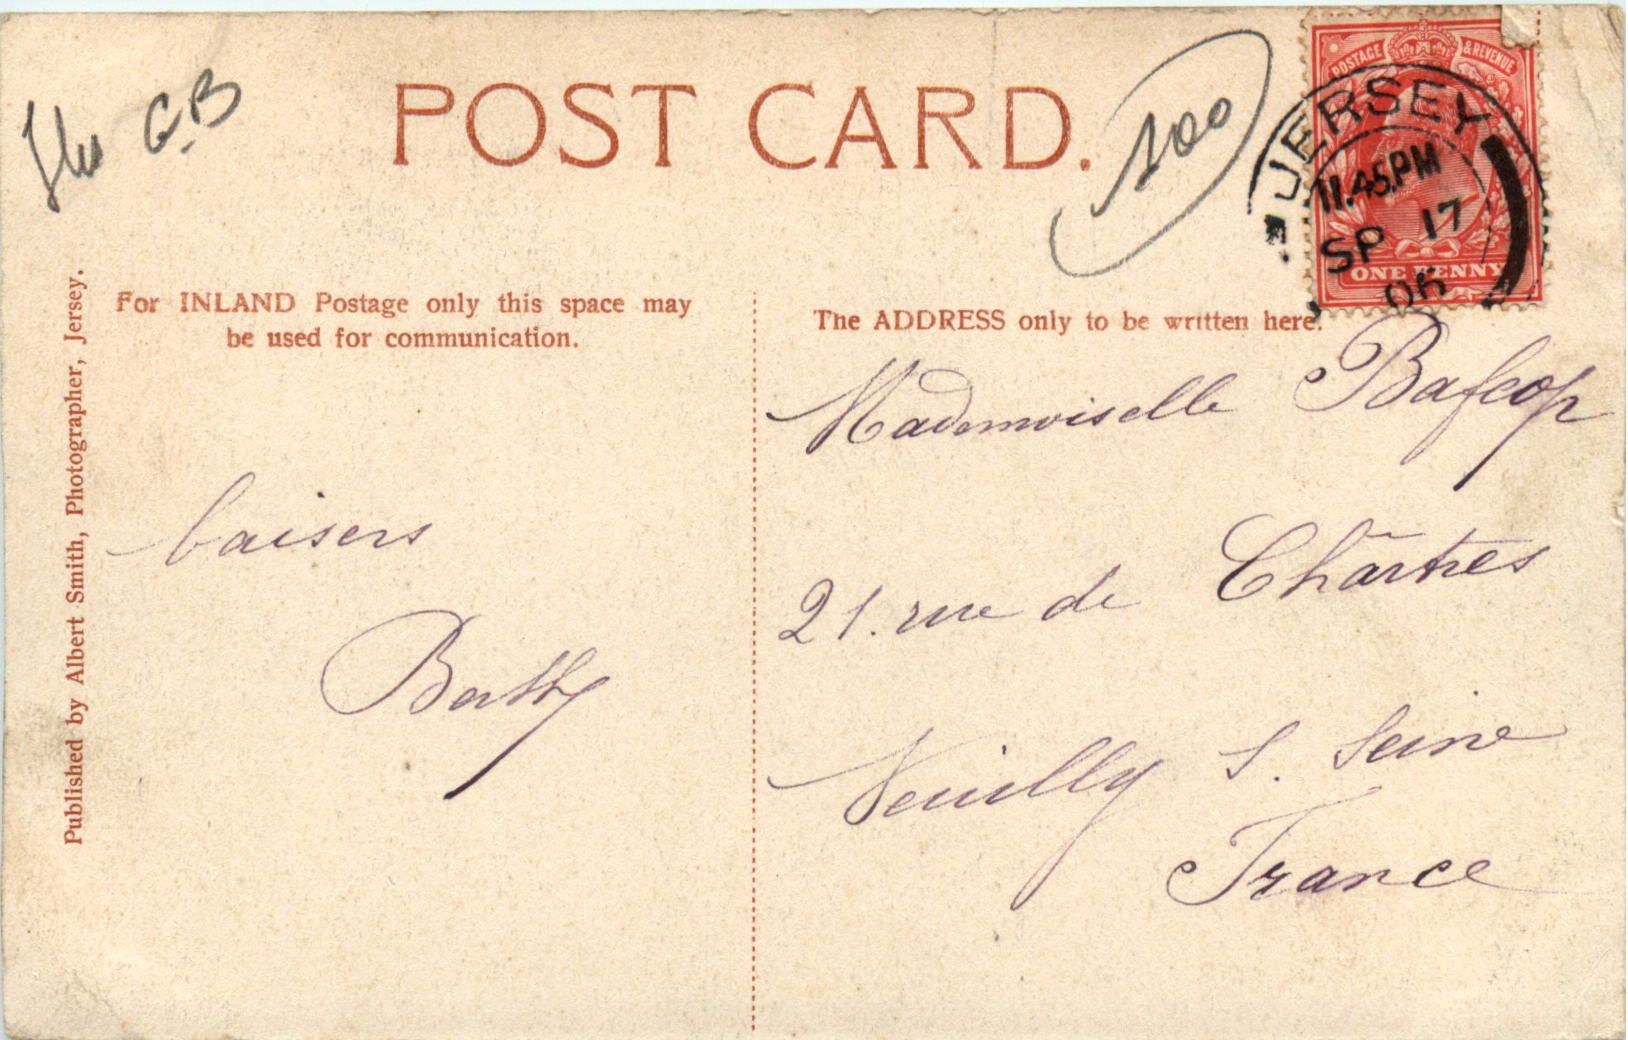 G.B
POST CARD.
100
POSTAGE & REVENUE
JERSEY
11.45PM
SP 17
06
ONE PENNY
For INLAND Postage only this space may
be used for communication.
The ADDRESS only to be written here.
Published by Albert Smith, Photographer, Jersey.
baisers
Berthy
Mademoiselle
21. rue de Chârtres
Neuilly s. Seine
France